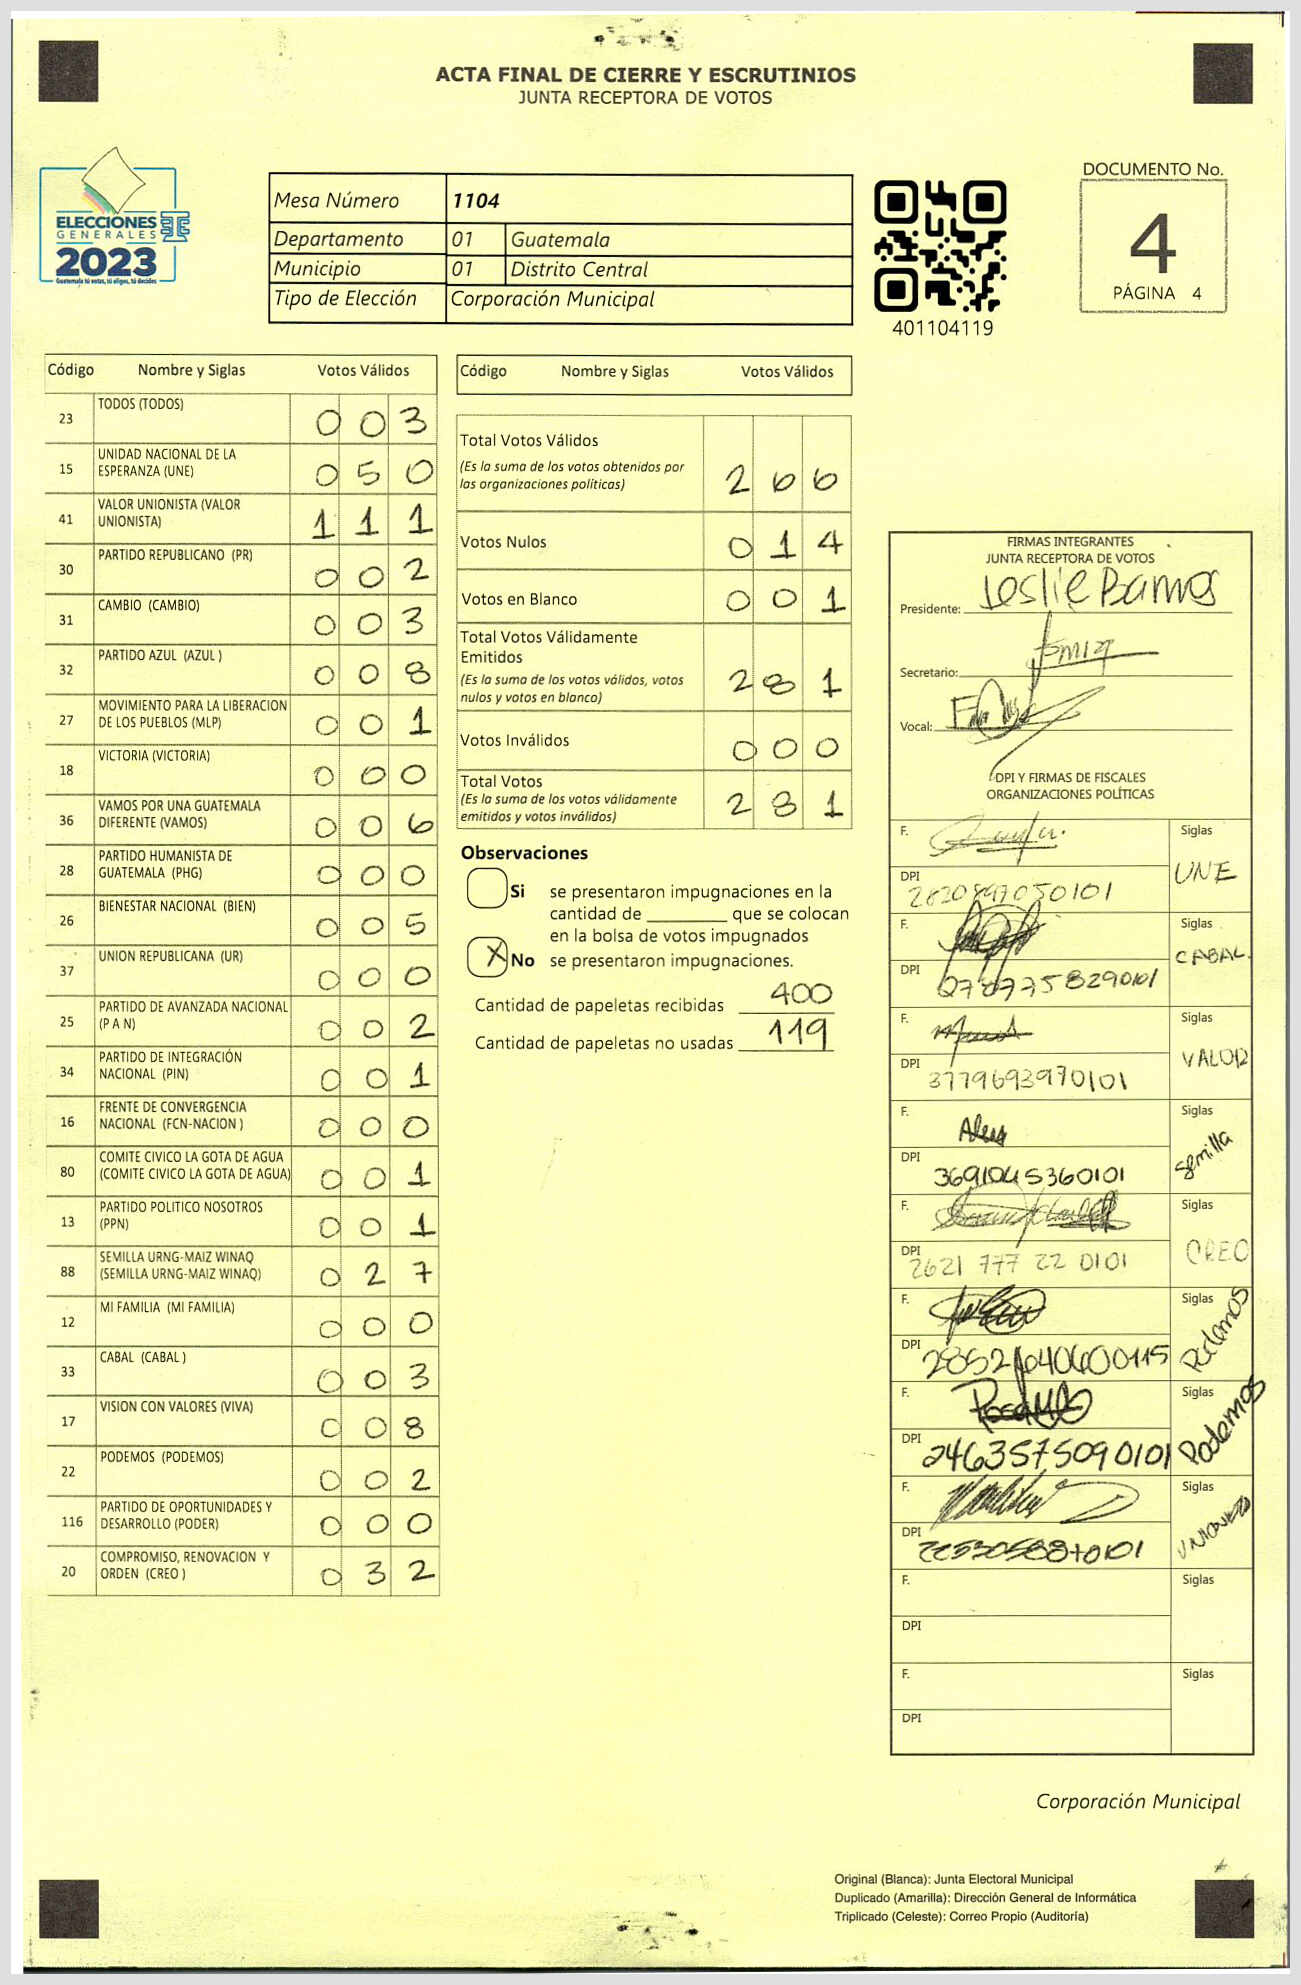 ACTA FINAL DE CIERRE Y ESCRUTINIOS
JUNTA RECEPTORA DE VOTOS
ELECCIONES
GENERALES
2023
Guatemala tú votas, tú eliges, tú decides
Mesa Número 1104
Departamento 01 Guatemala
Municipio 01 Distrito Central
Tipo de Elección Corporación Municipal
401104119
DOCUMENTO No.
4
PÁGINA 4
Código Nombre y Siglas Votos Válidos
23 TODOS (TODOS) 0 0 3
15 UNIDAD NACIONAL DE LA ESPERANZA (UNE) 0 5 0
41 VALOR UNIONISTA (VALOR UNIONISTA) 1 1 1
30 PARTIDO REPUBLICANO (PR) 0 0 2
31 CAMBIO (CAMBIO) 0 0 3
32 PARTIDO AZUL (AZUL ) 0 0 8
27 MOVIMIENTO PARA LA LIBERACION DE LOS PUEBLOS (MLP) 0 0 1
18 VICTORIA (VICTORIA) 0 0 0
36 VAMOS POR UNA GUATEMALA DIFERENTE (VAMOS) 0 0 6
28 PARTIDO HUMANISTA DE GUATEMALA (PHG) 0 0 0
26 BIENESTAR NACIONAL (BIEN) 0 0 5
37 UNION REPUBLICANA (UR) 0 0 0
25 PARTIDO DE AVANZADA NACIONAL (P A N) 0 0 2
34 PARTIDO DE INTEGRACIÓN NACIONAL (PIN) 0 0 1
16 FRENTE DE CONVERGENCIA NACIONAL (FCN-NACION ) 0 0 0
80 COMITE CIVICO LA GOTA DE AGUA (COMITE CIVICO LA GOTA DE AGUA) 0 0 1
13 PARTIDO POLITICO NOSOTROS (PPN) 0 0 1
88 SEMILLA URNG-MAIZ WINAQ (SEMILLA URNG-MAIZ WINAQ) 0 2 7
12 MI FAMILIA (MI FAMILIA) 0 0 0
33 CABAL (CABAL ) 0 0 3
17 VISION CON VALORES (VIVA) 0 0 8
22 PODEMOS (PODEMOS) 0 0 2
116 PARTIDO DE OPORTUNIDADES Y DESARROLLO (PODER) 0 0 0
20 COMPROMISO, RENOVACION Y ORDEN (CREO ) 0 3 2
Código Nombre y Siglas Votos Válidos
Total Votos Válidos 2 6 6
(Es la suma de los votos obtenidos por
las organizaciones políticas)
Votos Nulos 0 1 4
Votos en Blanco 0 0 1
Total Votos Válidamente
Emitidos 2 8 1
(Es la suma de los votos válidos, votos
nulos y votos en blanco)
Votos Inválidos 0 0 0
Total Votos 2 8 1
(Es la suma de los votos válidamente
emitidos y votos inválidos)
Observaciones
Si se presentaron impugnaciones en la
cantidad de ________ que se colocan
en la bolsa de votos impugnados
X No se presentaron impugnaciones.
Cantidad de papeletas recibidas 400
Cantidad de papeletas no usadas 119
FIRMAS INTEGRANTES
JUNTA RECEPTORA DE VOTOS
Presidente: Leslie
Secretario:
Vocal:
DPI Y FIRMAS DE FISCALES
ORGANIZACIONES POLÍTICAS
F. Siglas
DPI UNE
F. Siglas
DPI CABAL
F. Siglas
DPI 3779693970101 VALOR
F. Siglas
DPI Semilla
F. Siglas
DPI 2621 777 22 0101 CREO
F. Siglas
DPI Podemos
F. Siglas
DPI 2463575090101 Podemos
F. Siglas
DPI
F. Siglas
DPI
F. Siglas
DPI
Corporación Municipal
Original (Blanca): Junta Electoral Municipal
Duplicado (Amarilla): Dirección General de Informática
Triplicado (Celeste): Correo Propio (Auditoría)